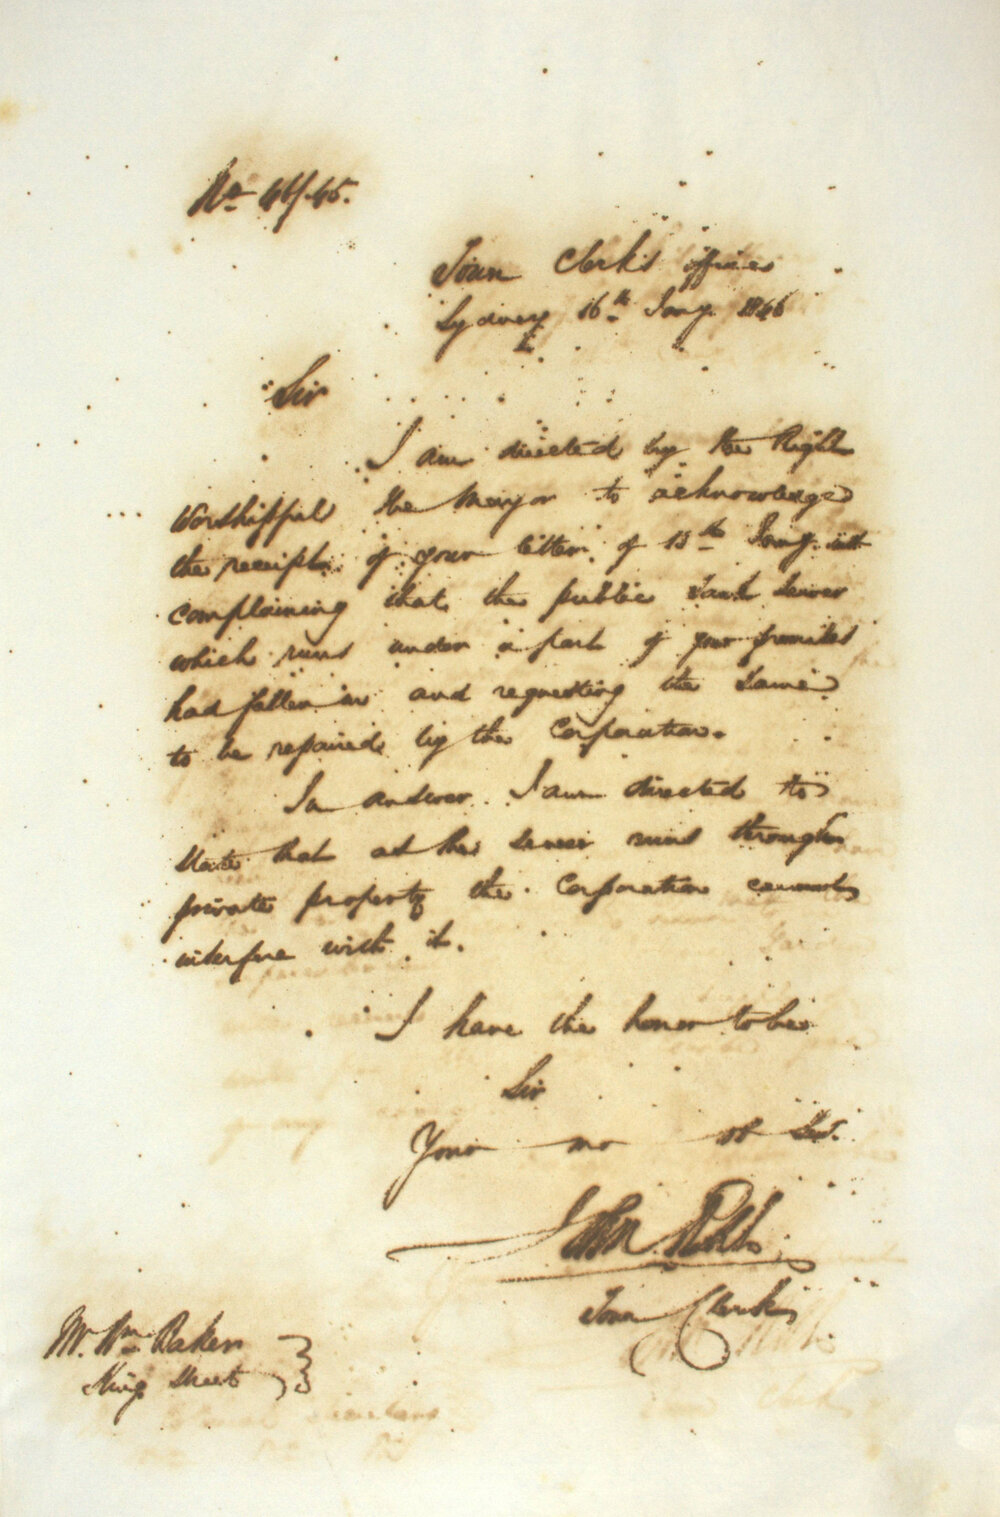 No 46/45.
Town Clerk's Offices
Sydney 16th Jany. 1846
Sir
I am directed by the Right
Worshipful the Mayor to acknowledge
the receipt of your letter of 15th Jany. inst
complaining that the public Tank Sewer
which runs under a part of your premises
had fallen in and requesting the same
to be repaired by the Corporation.
In answer I am directed to
state that as the Sewer runs through
private property the Corporation cannot
interfere with it.
I have the honor to be
Sir
Your mo ob Ser.
John Rbb.
Town Clerk
Mr. Wm Baker
King Street